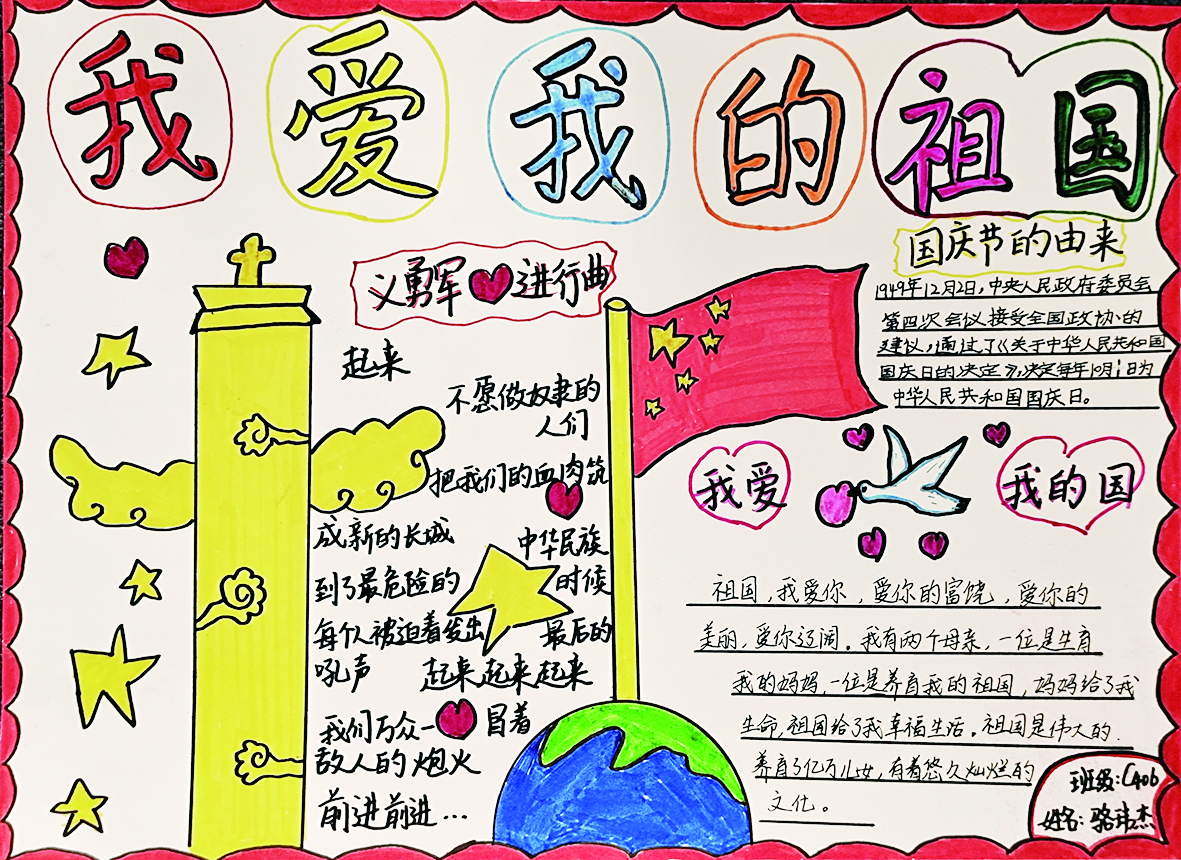 我爱我的祖国
义勇军进行曲
起来
不愿做奴隶的
人们
把我们的血肉筑
成新的长城
中华民族
到了最危险的
时候
每个人被迫着发出
最后的
吼声
起来起来起来
我们万众一
冒着
敌人的炮火
前进前进…
国庆节的由来
1949年12月2日,中央人民政府委员会
第四次会议接受全国政协的
建议,通过了《关于中华人民共和国
国庆日的决定》,决定每年10月1日为
中华人民共和国国庆日。
我爱
我的国
祖国,我爱你,爱你的富饶,爱你的
美丽,爱你辽阔。我有两个母亲,一位是生育
我的妈妈,一位是养育我的祖国,妈妈给了我
生命,祖国给了我幸福生活。祖国是伟大的.
养育了亿万儿女,有着悠久灿烂的
文化。
班级:C406
姓名:骆玮杰